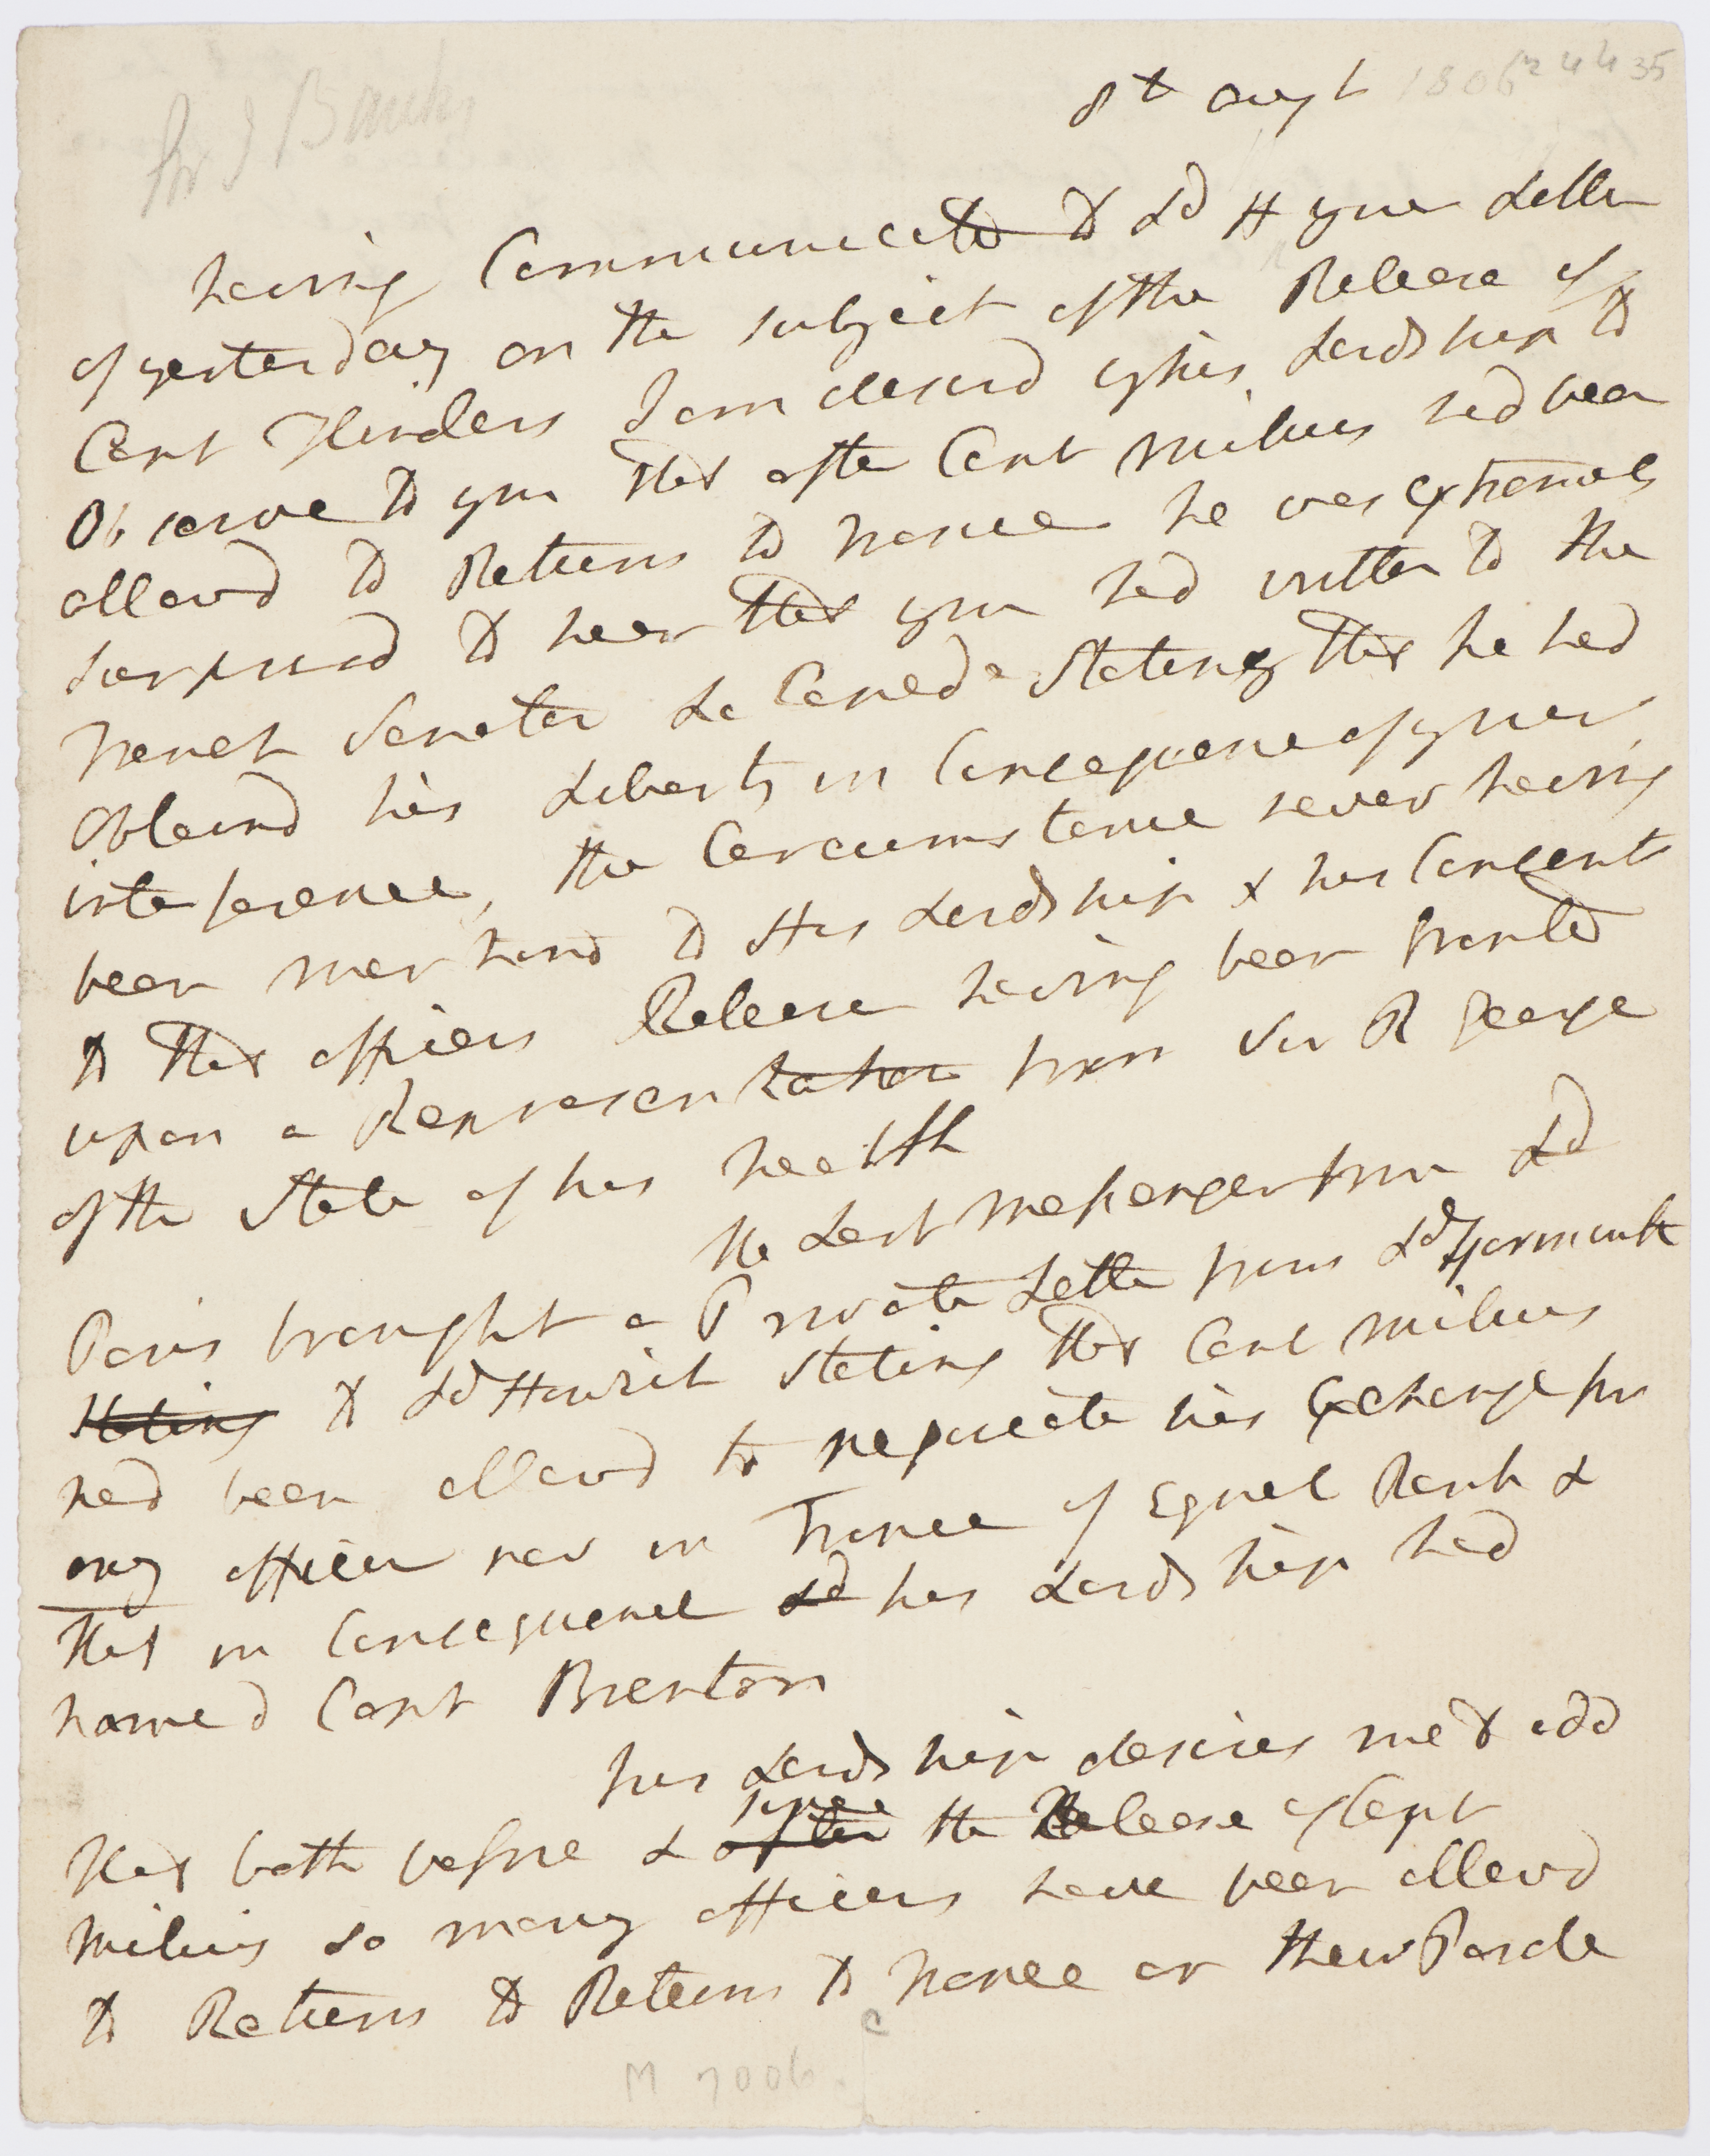 Sir J Banks
8th Augt 1806
having Communicated to Ld H your Letter
of yesterday on the subject of the Release of
Capt Flinders I am desird by his Lordship to
Observe to you that after Capt Milius had been
allowd to Return to France he was extremely
surprisd to hear that you had written to the
French Senator La Cepede Stating that he had
Obtaind his Liberty in Consequence of your
interference, the Circumstance never having
been mentiond to His Lordship & his Consent
to that officers Release having been granted
upon a Representation from Sir R George
of the State of his health
the Last Messenger from Ld
Paris brought a Private Letter from Ld Yarmouth
Stating to Ld Howick stating that Capt Milius
had been allowd to negociate his Exchange for
any officer now in France of Equal Rank &
that in Consequence Ld his Lordship had
named Capt Brenton
his Lordship desires me to add
that both before & after since the Release of Capt
Milius so many officers have been allowd
to Return to Return to France on their Parole
M 7006